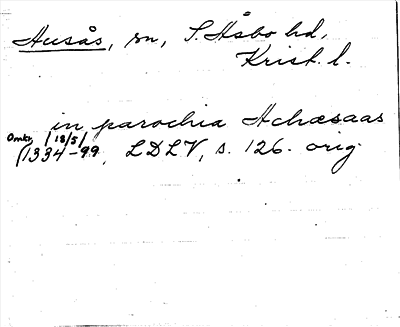 Husås, sn, S. Åsbo hd,
Krist. l.
in parochia Hchæsaas
Omkr. 18/5
(1334-99, LDLV, s. 126. orig.